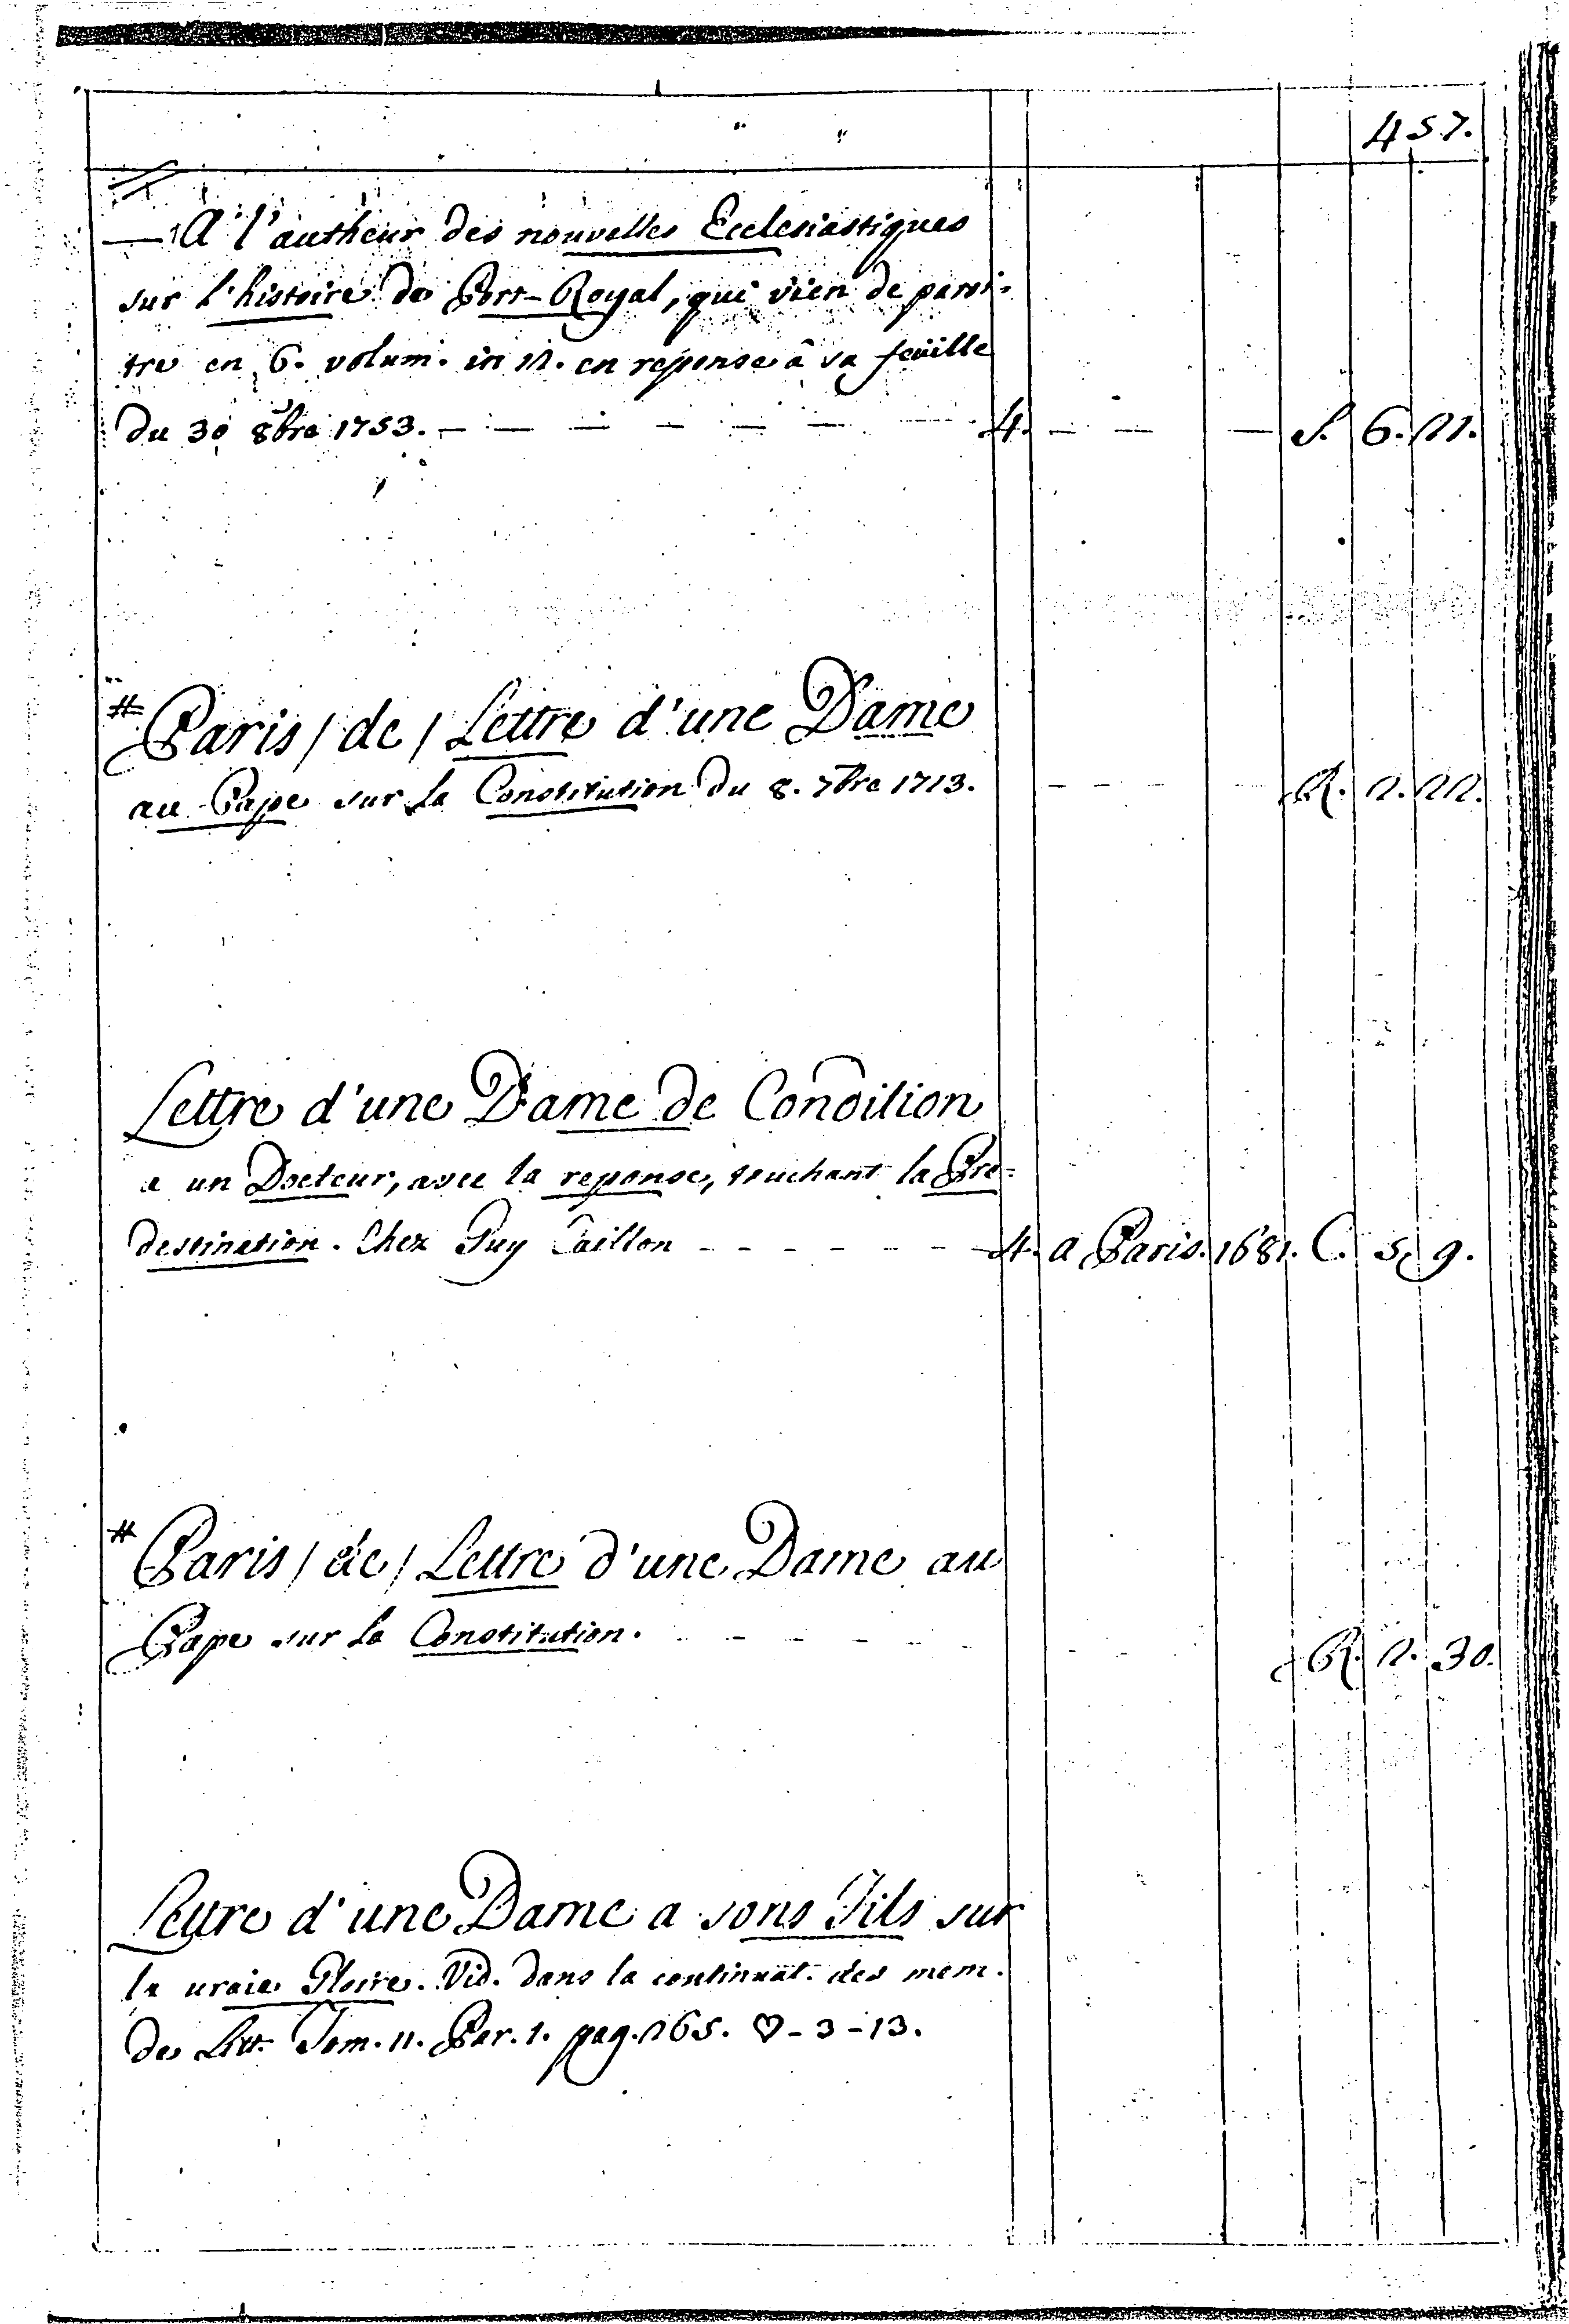 457.
— A l'autheur des nouvelles Ecclesiastiques
sur l'histoire de Port-Royal, qui vien de paroi-
tre en 6. volum. in 12. en reponse â sa feüille
du 30 8bre 1753. — — — — — — 4. — — — S. 6. 21.
# Paris / de / Lettre d'une Dame
au Pape sur la Constitution du 8. 7bre 1713. - - - R. 2. 22.
Lettre d'une Dame de Condition
a un Docteur, avec la reponse, touchant la Pre-
destination. Chez Guy Caillon - - - - - - 4. a Paris. 1681. C. 5. 9.
# Paris / de / Lettre d'une Dame au
Pape sur la Constitution. - - - - - R. 2. 30.
Lettre d'une Dame a sons Fils sur
la uraie Gloire. Vid. dans la continuat. des mem.
de Litt. Tom. 11. Par. 1. pag. 265. ♡ - 3 - 13.